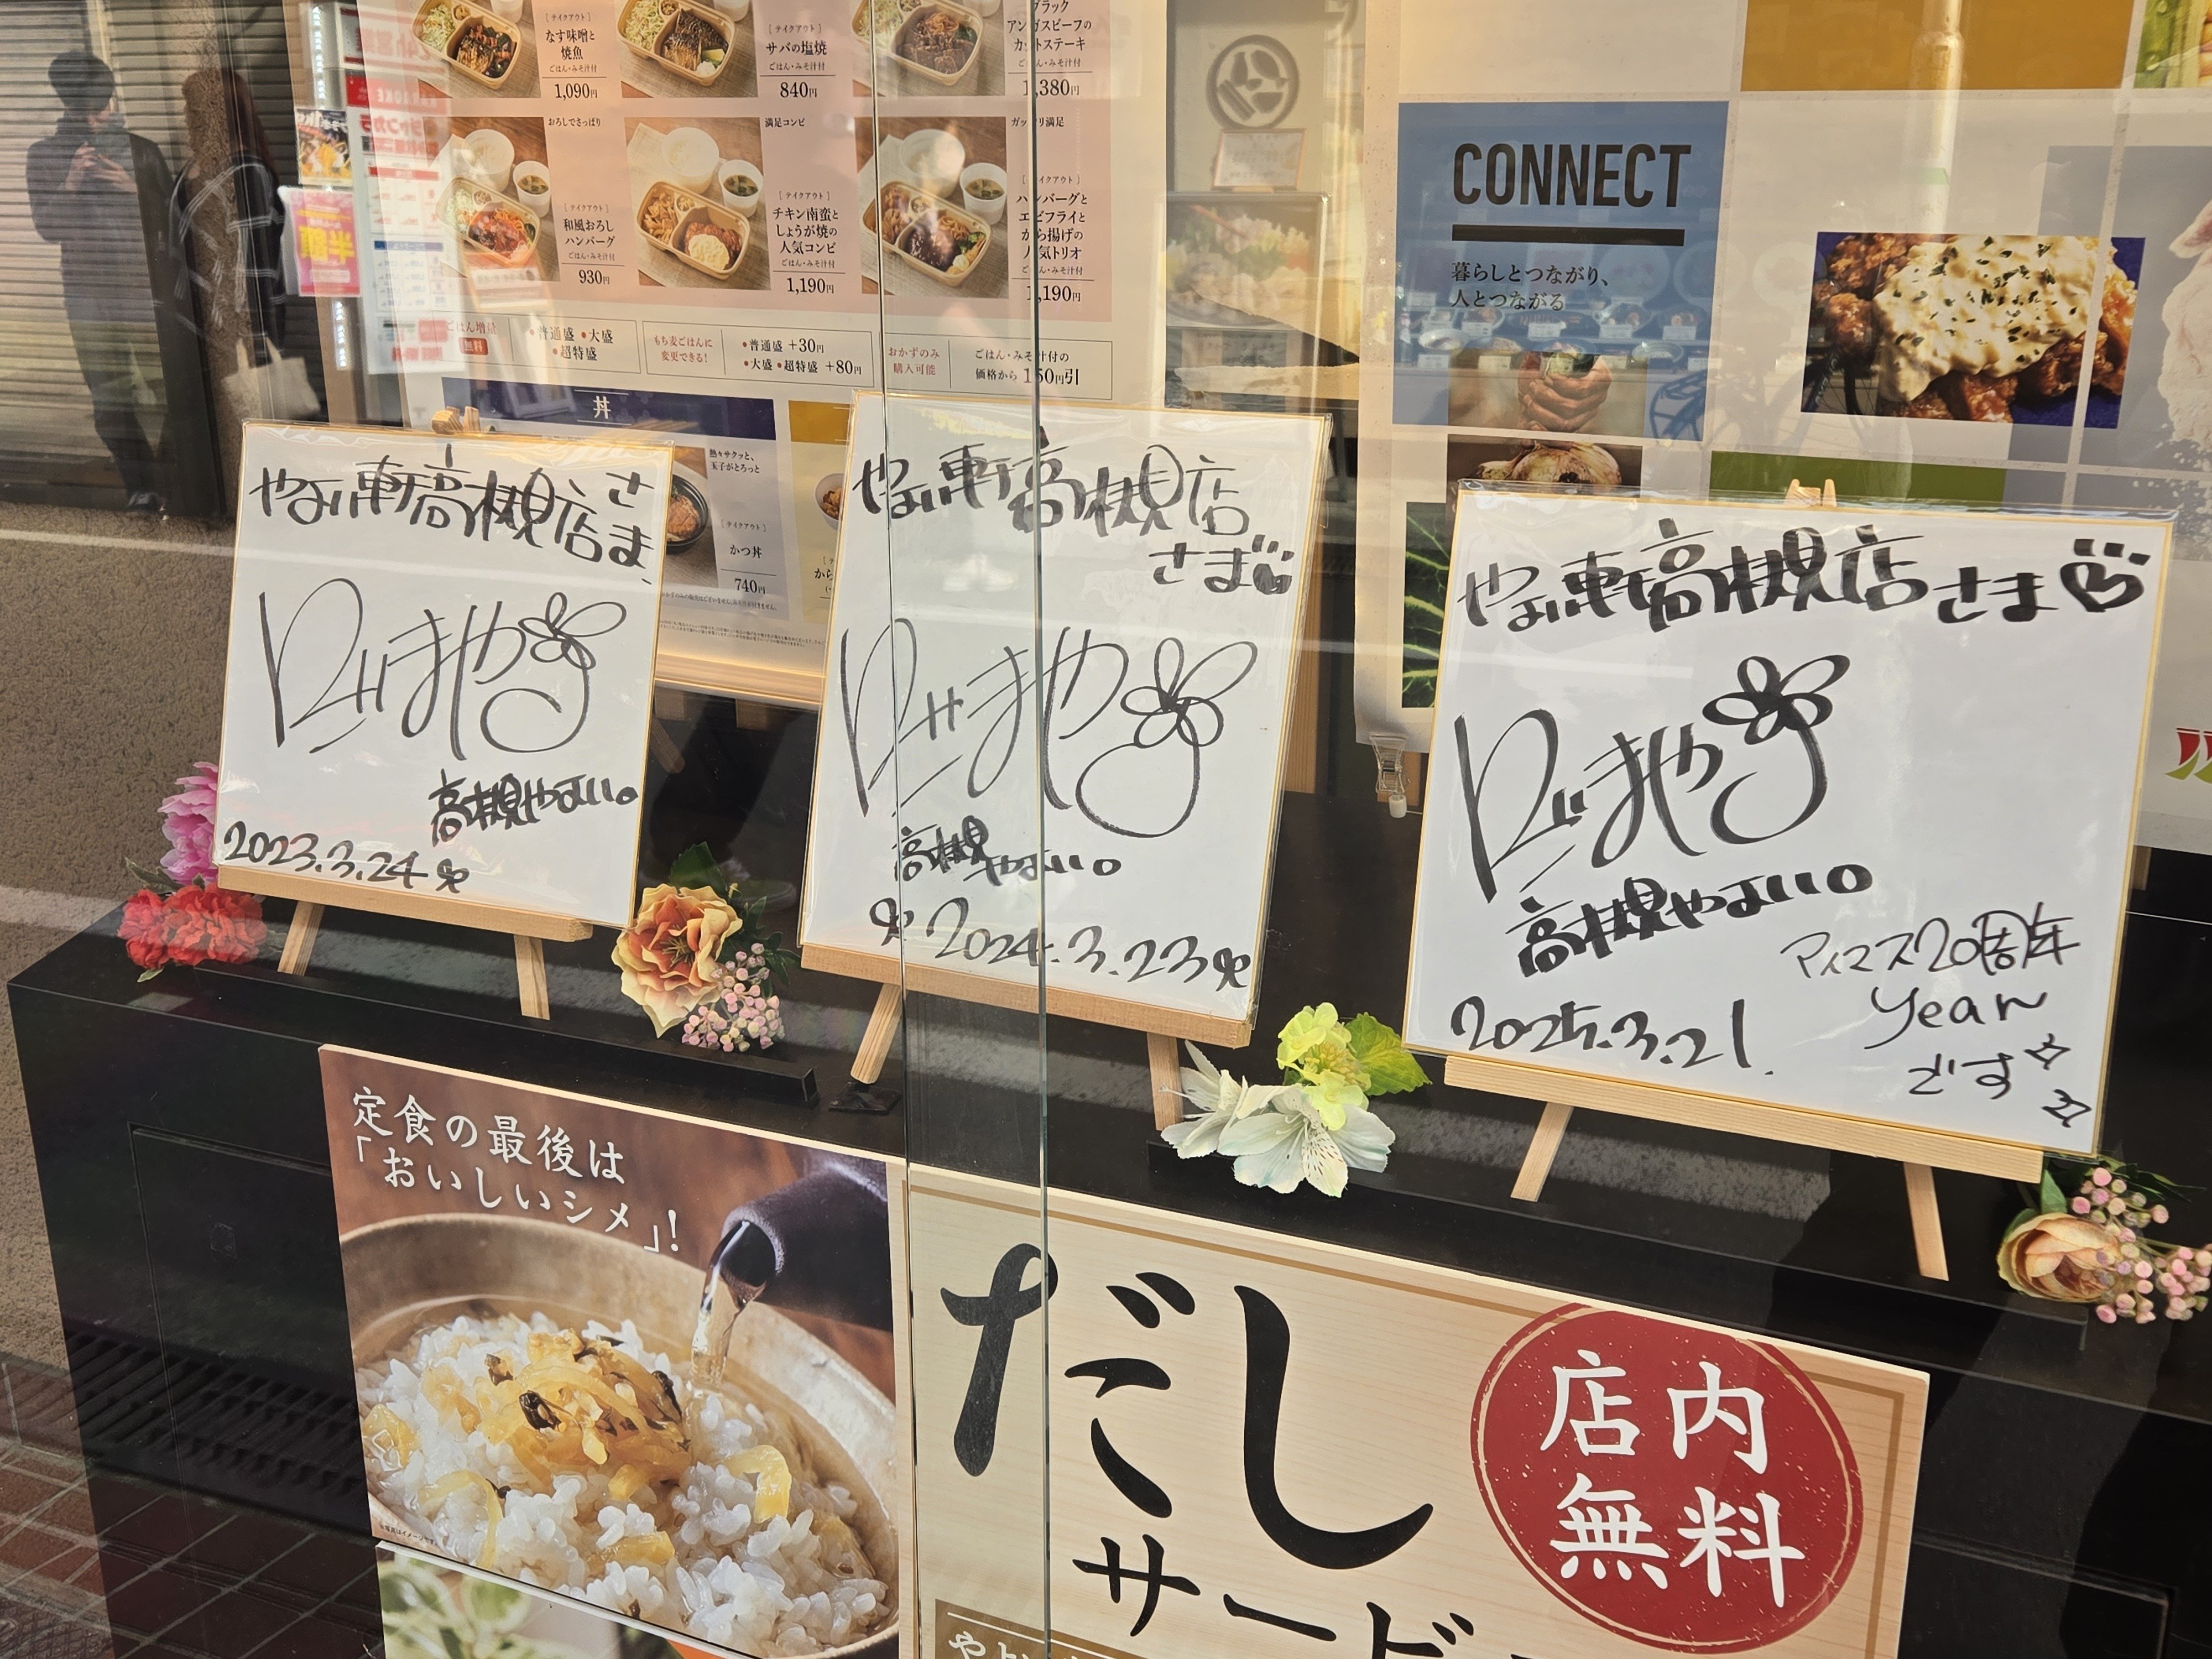 [テイクアウト]
なす味噌と
焼魚
ごはん・みそ汁付
1,090円
[テイクアウト]
サバの塩焼
ごはん・みそ汁付
840円
ブラック
アンガスビーフの
カットステーキ
ごはん・みそ汁付
1,380円
おろしでさっぱり
[テイクアウト]
和風おろし
ハンバーグ
ごはん・みそ汁付
930円
満足コンビ
[テイクアウト]
チキン南蛮と
しょうが焼の
人気コンビ
ごはん・みそ汁付
1,190円
ガッツリ満足
[テイクアウト]
ハンバーグと
エビフライと
から揚げの
人気トリオ
ごはん・みそ汁付
1,190円
ごはん増量
無料
•普通盛 •大盛
•超特盛
もち麦ごはんに
変更できる!
•普通盛 +30円
•大盛 •超特盛 +80円
おかずのみ
購入可能
ごはん・みそ汁付の
価格から 150円引
丼
熱々サクッと、
玉子がとろっと
[テイクアウト]
かつ丼
740円
CONNECT
暮らしとつながり、
人とつながる
やよい軒高槻店さま
高槻やよい。
2023.3.24
やよい軒高槻店
さま
高槻
やよい。
2024.3.23
やよい軒高槻店さま
高槻やよい。
アイマス20周年
year
です☆
☆
2025.3.21.
定食の最後は
「おいしいシメ」!
だし
サード
店内
無料